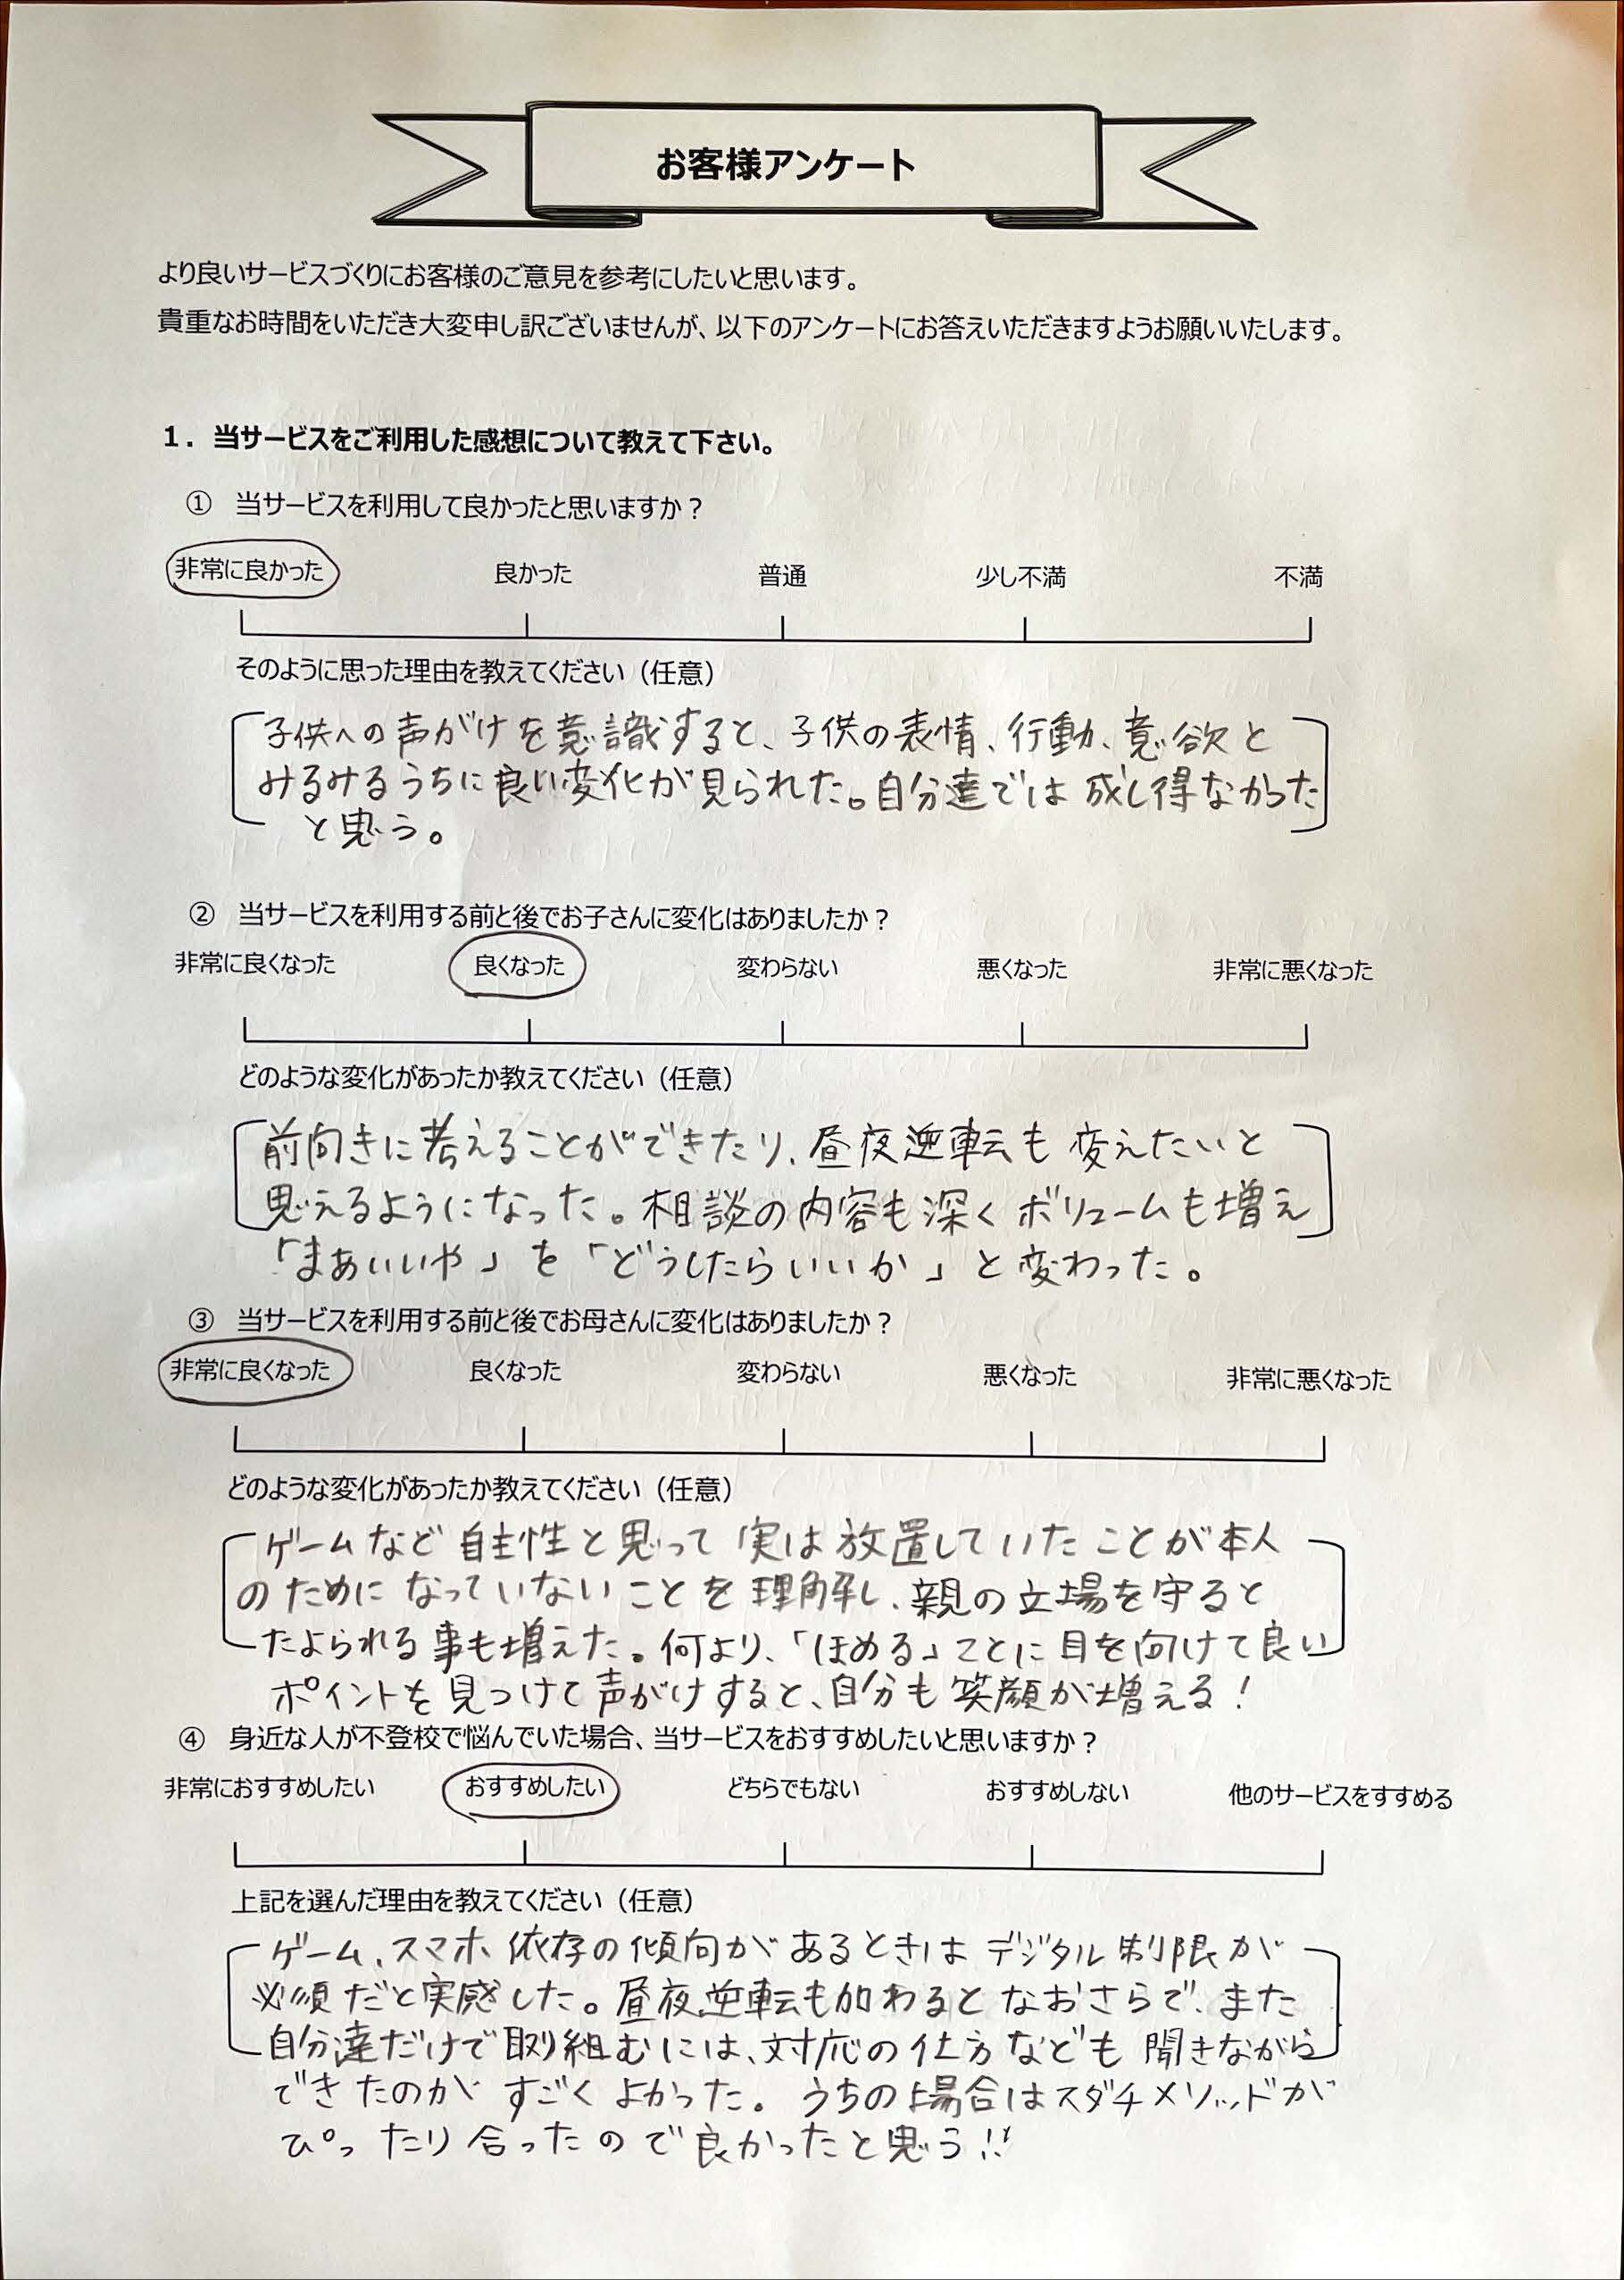 お客様アンケート
より良いサービスづくりにお客様のご意見を参考にしたいと思います。
貴重なお時間をいただき大変申し訳ございませんが、以下のアンケートにお答えいただきますようお願いいたします。
1. 当サービスをご利用した感想について教えて下さい。
① 当サービスを利用して良かったと思いますか？
非常に良かった 良かった 普通 少し不満 不満
そのように思った理由を教えてください（任意）
子供への声がけを意識すると、子供の表情、行動、意欲と
みるみるうちに良い変化が見られた。自分達では成し得なかった
と思う。
② 当サービスを利用する前と後でお子さんに変化はありましたか？
非常に良くなった 良くなった 変わらない 悪くなった 非常に悪くなった
どのような変化があったか教えてください（任意）
前向きに考えることができたり、昼夜逆転も変えたいと
思えるようになった。相談の内容も深くボリュームも増え
「まあいいや」を「どうしたらいいか」と変わった。
③ 当サービスを利用する前と後でお母さんに変化はありましたか？
非常に良くなった 良くなった 変わらない 悪くなった 非常に悪くなった
どのような変化があったか教えてください（任意）
ゲームなど自主性と思って実は放置していたことが本人
のためになっていないことを理解し、親の立場を守ると
たよられる事も増えた。何より、「ほめる」ことに目を向けて良い
ポイントを見つけて声がけすると、自分も笑顔が増える！
④ 身近な人が不登校で悩んでいた場合、当サービスをおすすめしたいと思いますか？
非常におすすめしたい おすすめしたい どちらでもない おすすめしない 他のサービスをすすめる
上記を選んだ理由を教えてください（任意）
ゲーム、スマホ依存の傾向があるときはデジタル制限が
必須だと実感した。昼夜逆転も加わるとなおさらで、また
自分達だけで取り組むには、対応の仕方なども聞きながら
できたのがすごくよかった。うちの場合はスダチメソッドが
ぴったり合ったので良かったと思う!!